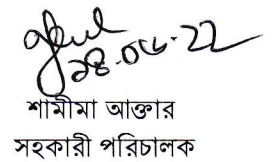 ২৪·০৮·২২
শামীমা আক্তার
সহকারী পরিচালক